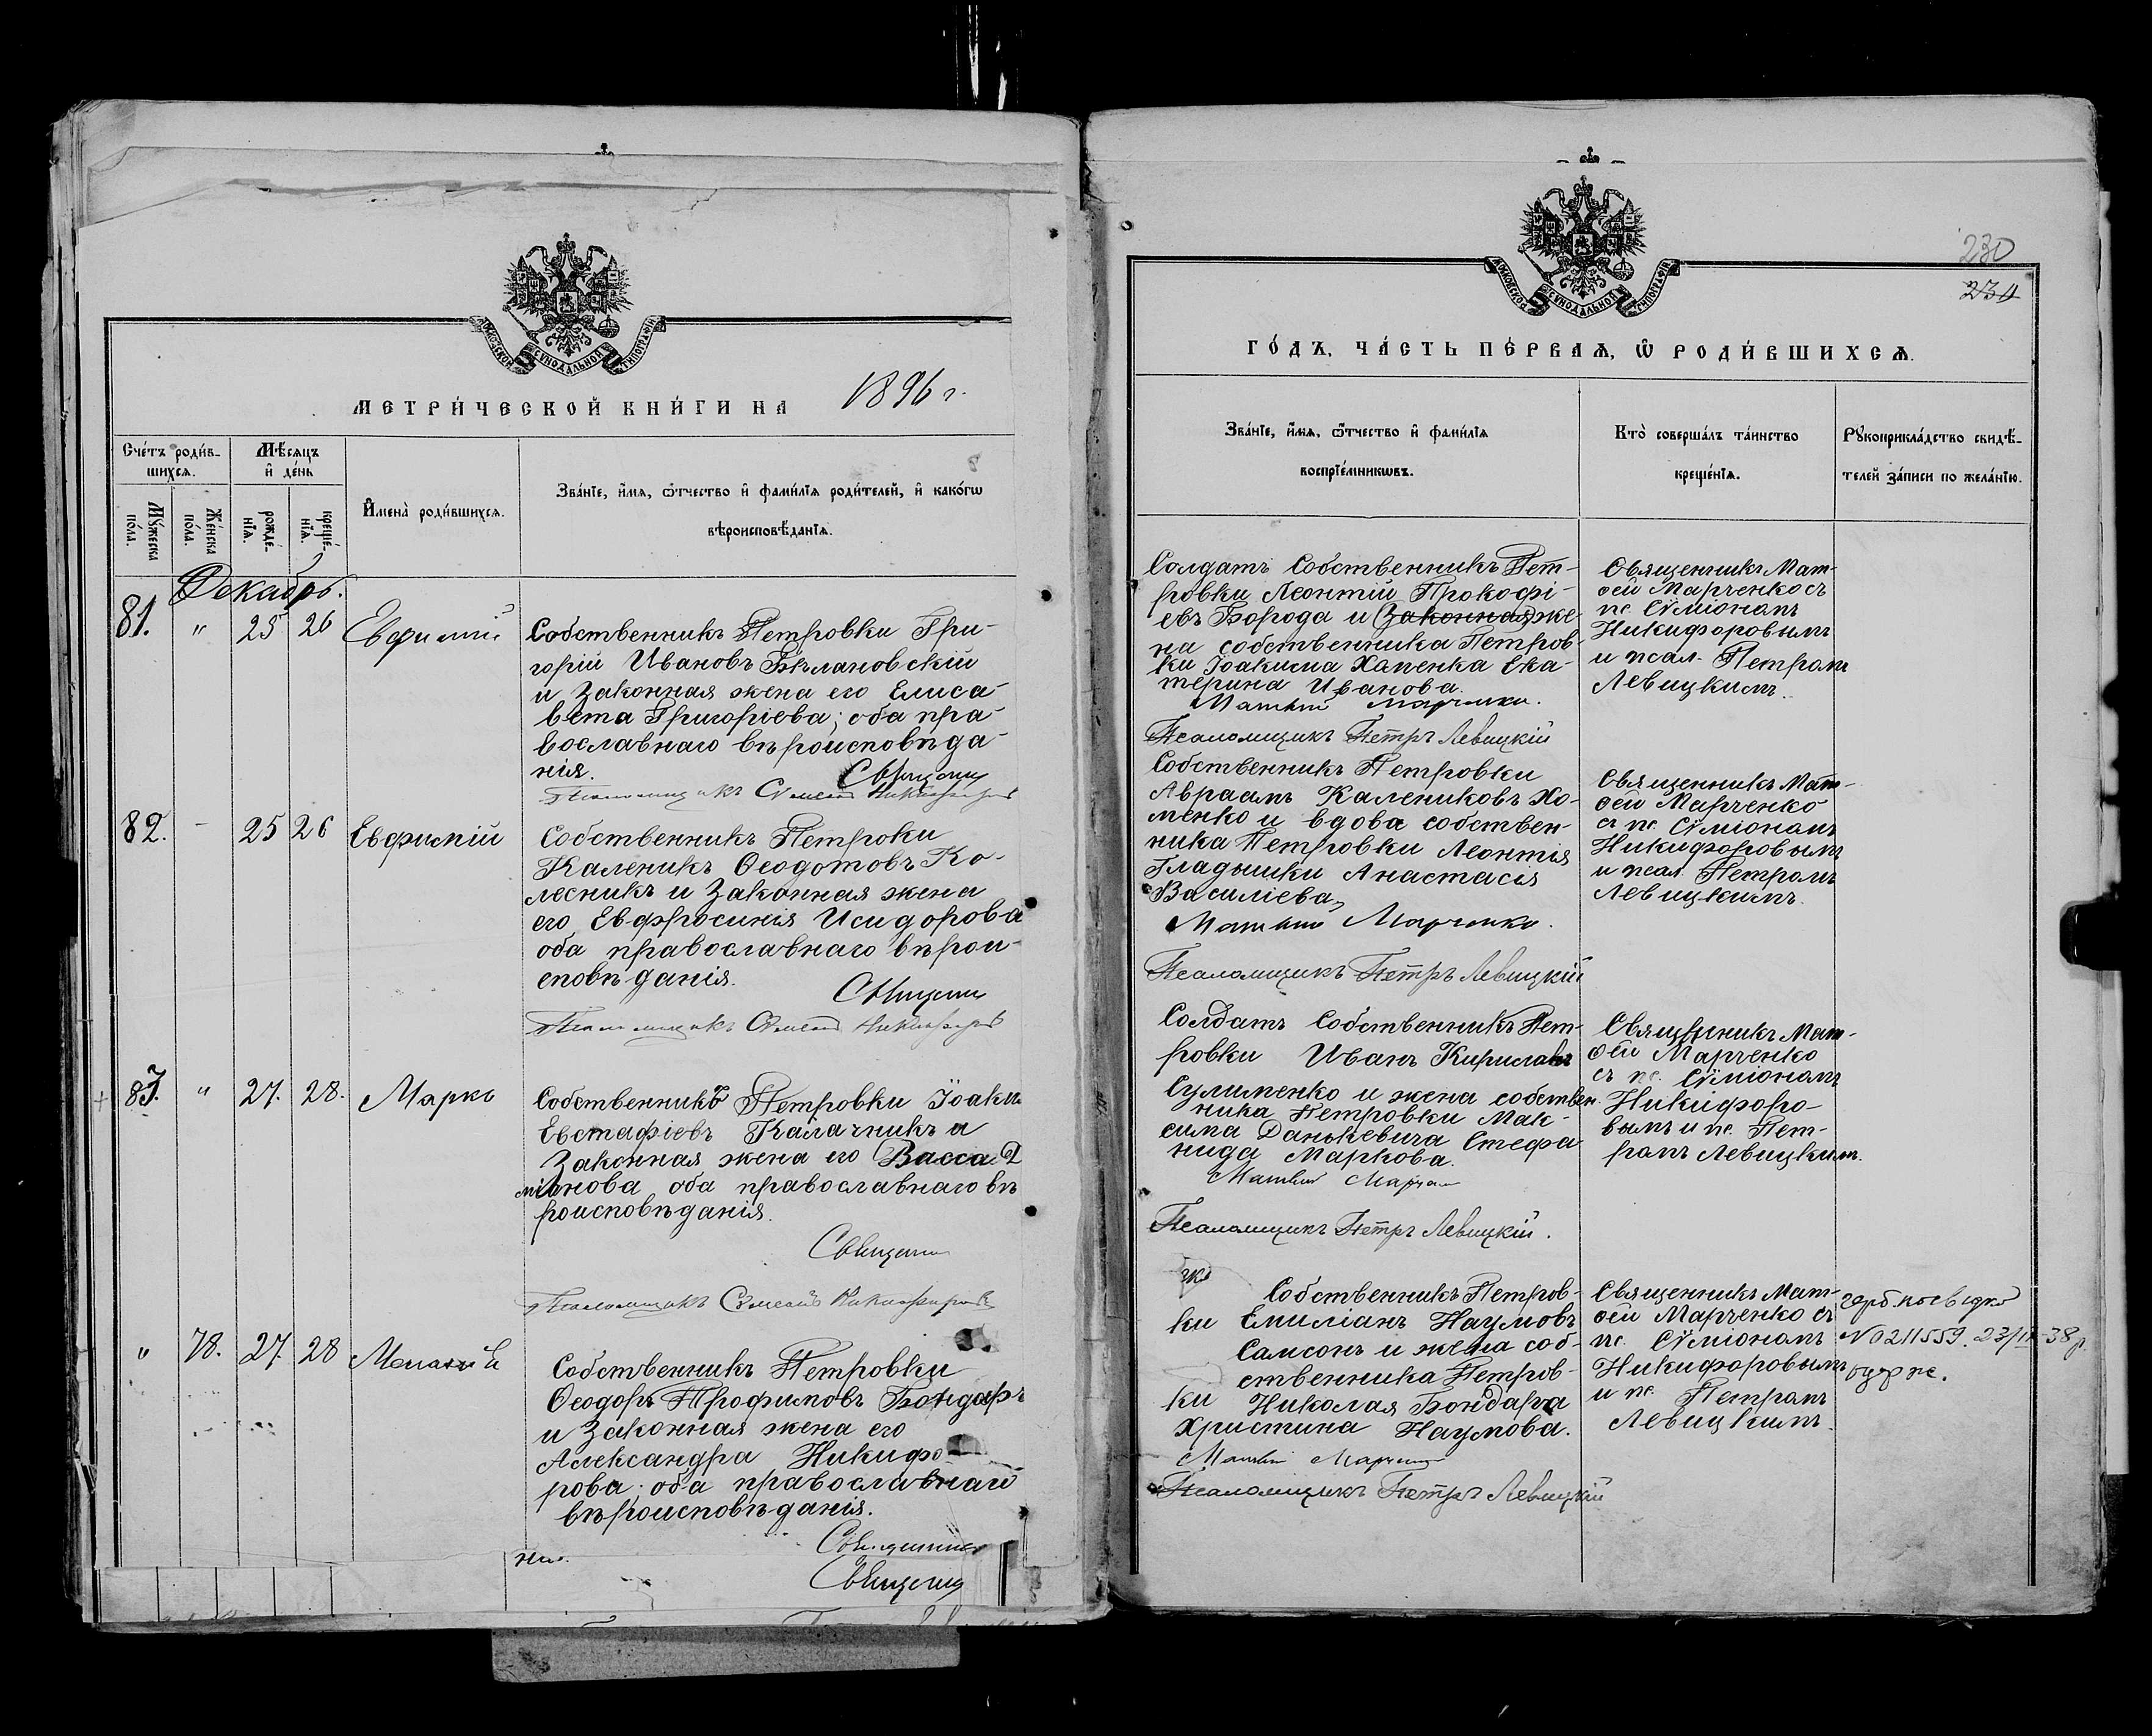 230
230
МОСКОВСКОЙ СѴНОДАЛЬНОЙ ТИПОГРАФІИ
МЕТРИ́ЧЕСКОЙ КНИ́ГИ НА 1896 г.
Сче́тъ роди́в-
шихся.
Мѣ́сяцъ
и҆ де́нь
Мꙋ́жеска
по́ла.
Же́нска
по́ла.
рожде́-
нїѧ.
креще́-
нїѧ.
И҆мена̀ роди́вшихсѧ.
Зва́нїе, и҆́мѧ, ѻ҆́тчество и҆ фами́лїѧ роди́телей, и҆ како́гѡ
вѣроисповѣ́данїѧ.
Декабрь.
81. " 25 26 Евфимій
Собственникъ Петровки Гри-
горій Ивановъ Бѣлановскій
и законная жена его Елиса-
вета Григоріева; оба пра-
вославнаго вѣроисповѣда-
нія.
Священник
Псаломщикъ Сѵмеонъ Никифоровъ
82. - 25 26 Евфимій
Собственникъ Петроки
Каленикъ Ѳеодотовъ Ко-
лесникъ и законная жена
его Евфросинія Исидорова
оба православнаго вѣрои-
сповѣданія.
Священник
Псаломщикъ Сѵмеонъ Никифоровъ
83. " 27. 28. Марко
Собственникъ Петровки Іоаки
Евстафіевъ Калачникъ и
законная жена его Васса Д
міянова оба православнаго вѣ
роисповѣданія.
Священник
Псаломщикъ Сѵмеонъ Никифоровъ
" 78. 27. 28 Меланія
Собственникъ Петровки
Ѳеодоръ Трофимовъ Бондарь
и законная жена его
Александра Никифо-
рова; оба православнаго
вѣроисповѣданія.
Священник
нія.
Священник
МОСКОВСКОЙ СѴНОДАЛЬНОЙ ТИПОГРАФІИ
ГО́ДЪ, ЧА́СТЬ ПЕ́РВАѦ, Ѡ҆ РОДИ́ВШИХСѦ.
Зва́нїе, и҆́мѧ, ѻ҆́тчество и҆ фами́лїѧ
воспрїе́мникѡвъ.
Кто̀ соверша́лъ та́инство
креще́нїѧ.
Рꙋкоприкла́дство свидѣ́-
телей за́писи по жела́нїю.
Солдатъ Собственникъ Пет-
ровки Леонтій Прокофі-
евъ Борода и (законная) же-
на собственника Петров-
ки Іоакима Хапенка Ека-
терина Иванова.
Матвій Марченко.
Псаломщикъ Петръ Левицкій
Священникъ Мат-
ѳей Марченко съ
пс. Сѵміономъ
Никифоровымъ
и псал. Петромъ
Левицкимъ.
Собственникъ Петровки
Авраамъ Калениковъ Хо-
менко и вдова собствен-
ника Петровки Леонтія
Гладышки Анастасія
Василіева
Матвій Марченко.
Псаломщикъ Петръ Левицкій
Священникъ Мат-
ѳей Марченко
съ пс. Сѵміономъ
Никифоровымъ
и псал. Петромъ
Левицкимъ.
Солдатъ Собственникъ Пет-
ровки Иванъ Кириловъ
Сулименко и жена собствен.
ника Петровки Мак-
сима Данькевича Стефа-
нида Маркова.
Матвій Марченко
Псаломщикъ Петръ Левицкій.
Священникъ Мат-
ѳей Марченко
съ пс. Сѵміономъ
Никифоро-
вымъ и пс. Пет-
ромъ Левицкимъ.
Собственникъ Петров-
ки Емиліанъ Наумовъ
Самсонъ и жена соб-
ственника Петров-
ки Николая Бондаря
Христина Наумова.
Матвій Марченко
Псаломщикъ Петръ Левицкій
Священникъ Мат-
ѳей Марченко съ
пс. Сѵміономъ
Никифоровымъ
и пс. Петромъ
Левицкимъ.
№ 0211559. 23/II-38 р.